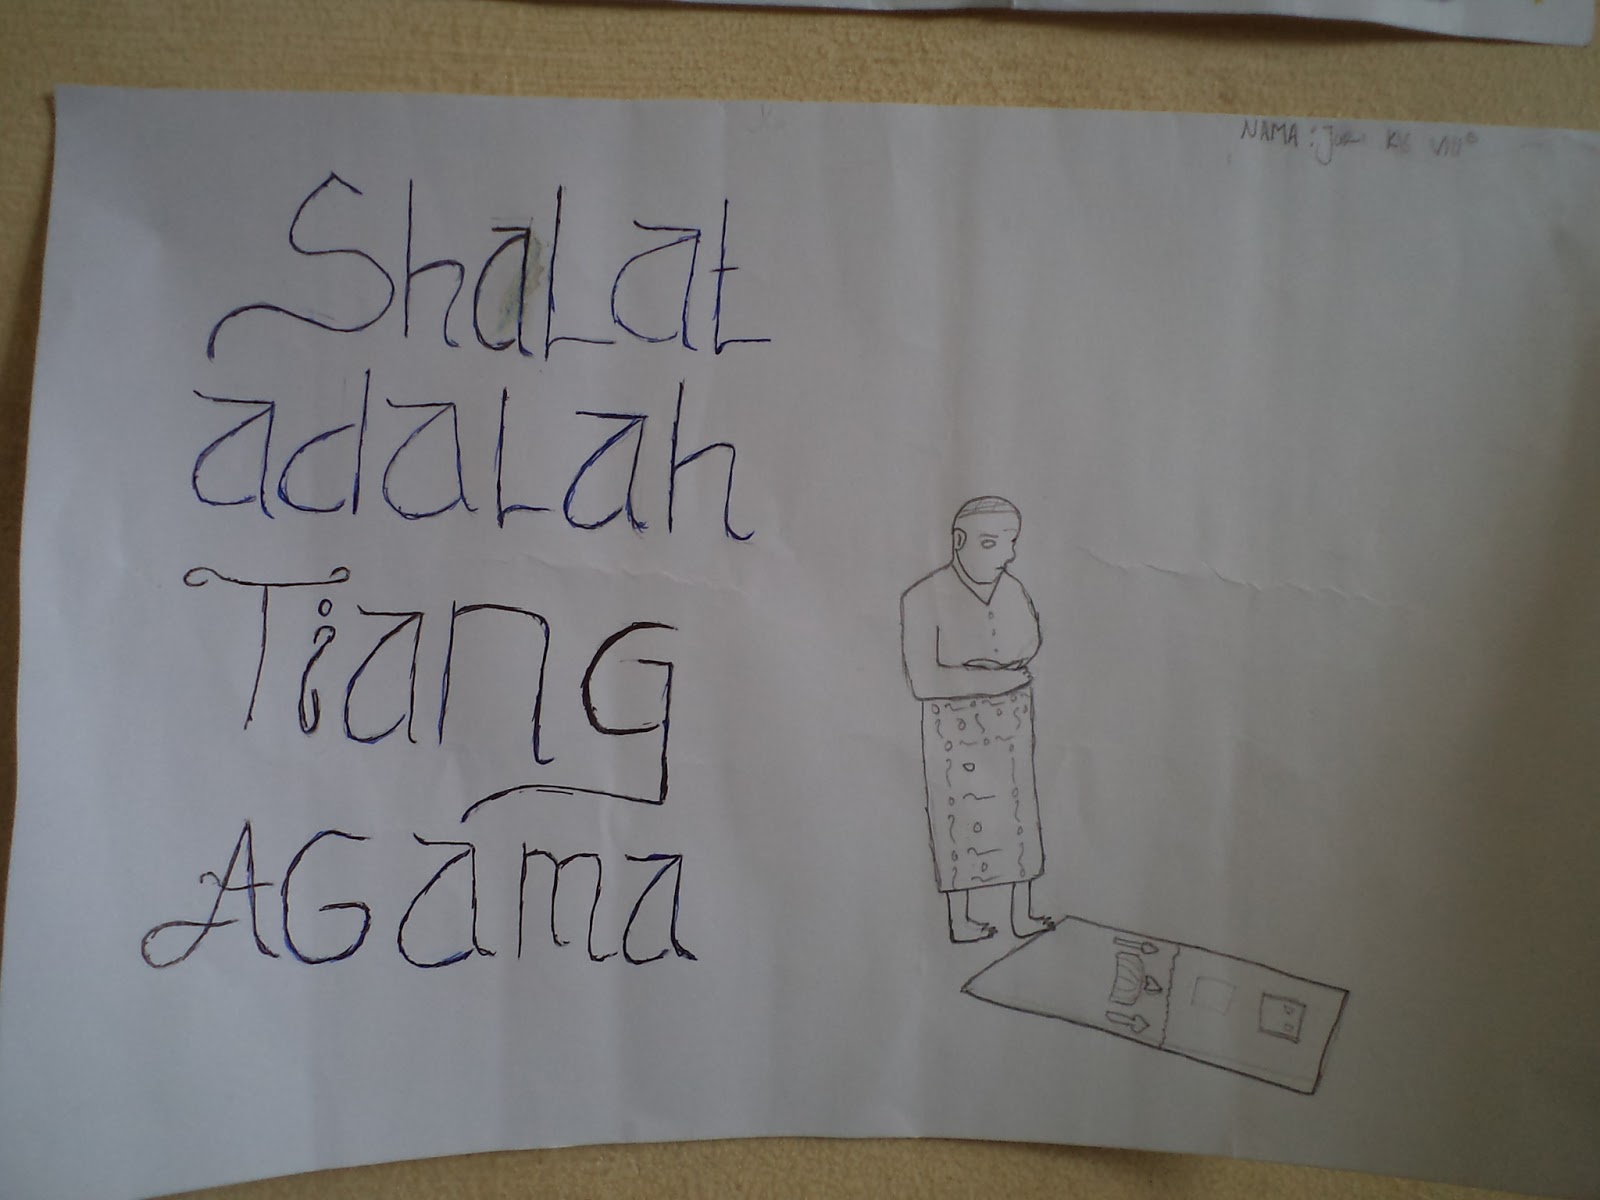 NAMA : Kls VIII
ShaLat
adaLah
Tiang
AGama